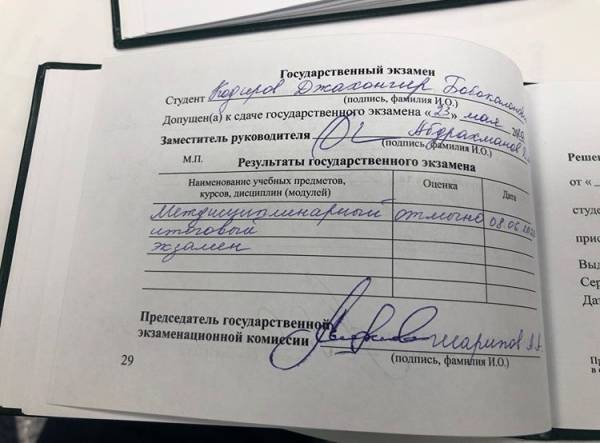 Государственный экзамен
Студент Кодиров Джахонгир
(подпись, фамилия И.О.)
Допущен(а) к сдаче государственного экзамена «23» мая
Заместитель руководителя Абдрахманов
(подпись, фамилия И.О.)
М.П.
Результаты государственного экзамена
Наименование учебных предметов, курсов, дисциплин (модулей) Оценка Дата
Междисциплинарный отлично 08.06
итоговый
экзамен
Председатель государственной
экзаменационной комиссии Шарипов
(подпись, фамилия И.О.)
29
Реше
от «
студе
прис
Выд
Сер
Дат